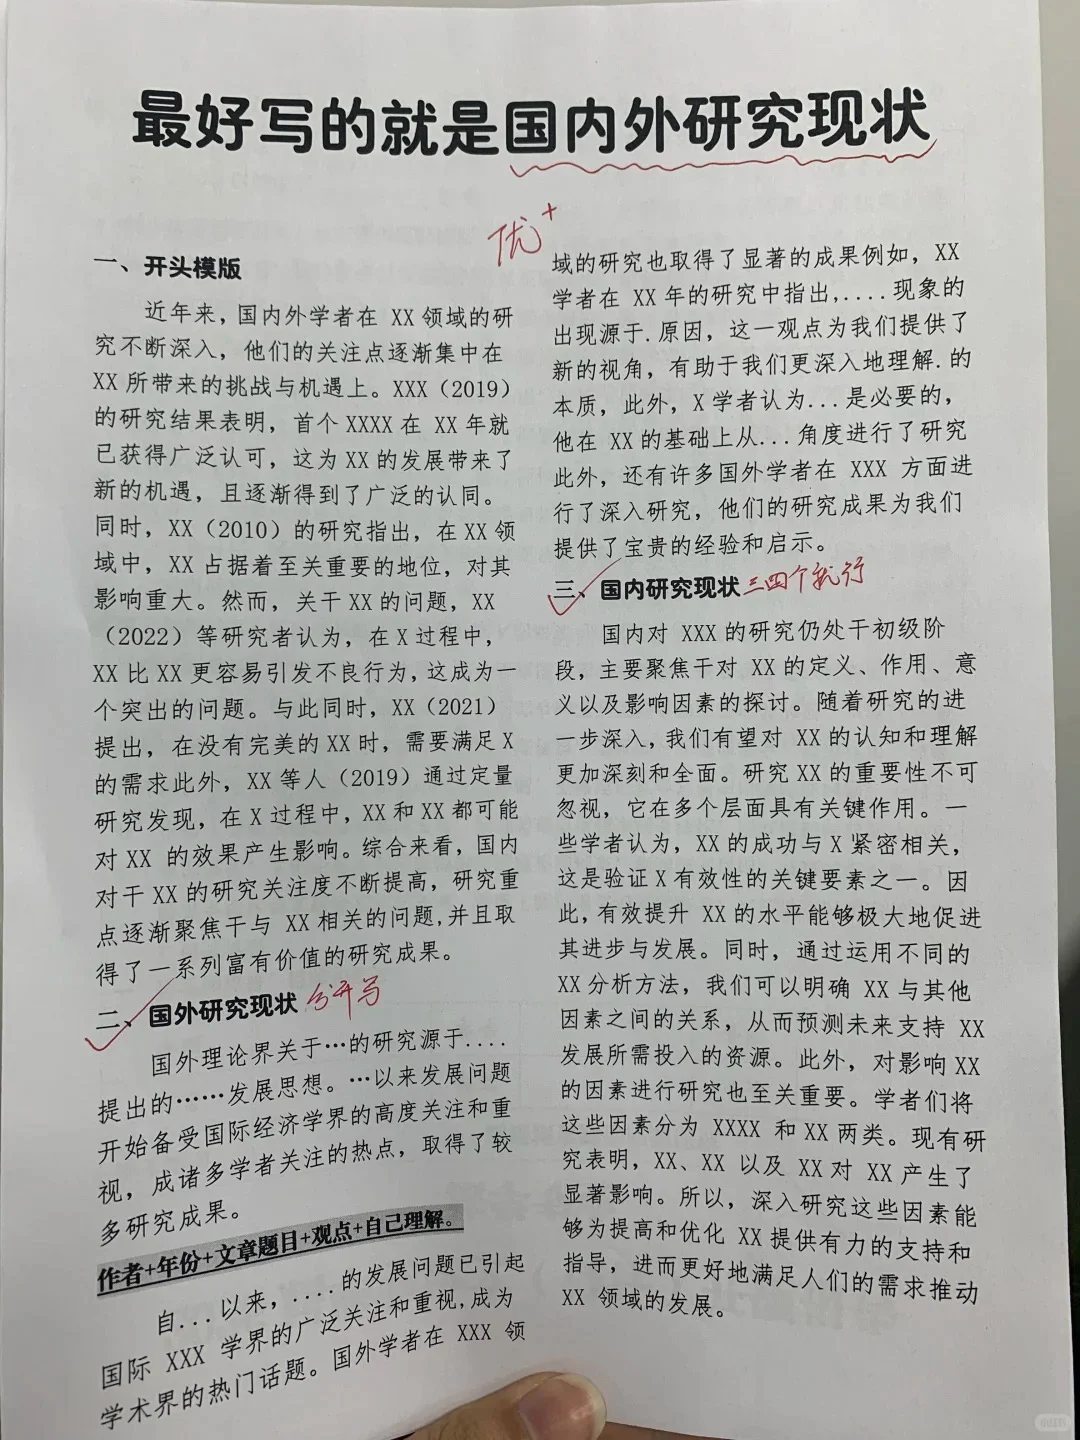 最好写的就是国内外研究现状
优+
一、开头模版
近年来，国内外学者在 XX 领域的研
究不断深入，他们的关注点逐渐集中在
XX 所带来的挑战与机遇上。XXX（2019）
的研究结果表明，首个 XXXX 在 XX 年就
已获得广泛认可，这为 XX 的发展带来了
新的机遇，且逐渐得到了广泛的认同。
同时，XX（2010）的研究指出，在 XX 领
域中，XX 占据着至关重要的地位，对其
影响重大。然而，关干 XX 的问题，XX
（2022）等研究者认为，在 X 过程中，
XX 比 XX 更容易引发不良行为，这成为一
个突出的问题。与此同时，XX（2021）
提出，在没有完美的 XX 时，需要满足 X
的需求此外，XX 等人（2019）通过定量
研究发现，在 X 过程中，XX 和 XX 都可能
对 XX 的效果产生影响。综合来看，国内
对干 XX 的研究关注度不断提高，研究重
点逐渐聚焦干与 XX 相关的问题,并且取
得了一系列富有价值的研究成果。
二、国外研究现状 分开写
国外理论界关于…的研究源于....
提出的……发展思想。…以来发展问题
开始备受国际经济学界的高度关注和重
视，成诸多学者关注的热点，取得了较
多研究成果。
作者+年份+文章题目+观点+自己理解。
自...以来，....的发展问题已引起
国际 XXX 学界的广泛关注和重视,成为
学术界的热门话题。国外学者在 XXX 领
域的研究也取得了显著的成果例如，XX
学者在 XX 年的研究中指出,....现象的
出现源于.原因，这一观点为我们提供了
新的视角，有助于我们更深入地理解.的
本质，此外，X 学者认为...是必要的，
他在 XX 的基础上从...角度进行了研究
此外，还有许多国外学者在 XXX 方面进
行了深入研究，他们的研究成果为我们
提供了宝贵的经验和启示。
三、国内研究现状 三四个就行
国内对 XXX 的研究仍处干初级阶
段，主要聚焦干对 XX 的定义、作用、意
义以及影响因素的探讨。随着研究的进
一步深入，我们有望对 XX 的认知和理解
更加深刻和全面。研究 XX 的重要性不可
忽视，它在多个层面具有关键作用。一
些学者认为，XX 的成功与 X 紧密相关，
这是验证 X 有效性的关键要素之一。因
此，有效提升 XX 的水平能够极大地促进
其进步与发展。同时，通过运用不同的
XX 分析方法，我们可以明确 XX 与其他
因素之间的关系，从而预测未来支持 XX
发展所需投入的资源。此外，对影响 XX
的因素进行研究也至关重要。学者们将
这些因素分为 XXXX 和 XX 两类。现有研
究表明，XX、XX 以及 XX 对 XX 产生了
显著影响。所以，深入研究这些因素能
够为提高和优化 XX 提供有力的支持和
指导，进而更好地满足人们的需求推动
XX 领域的发展。